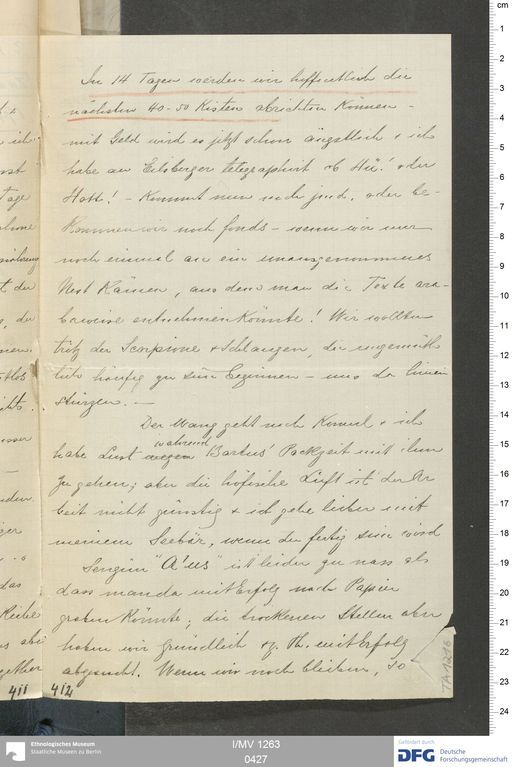 In 14 Tagen werden wir hoffentlich die
nächsten 40-50 Kisten abrichten können -
mit Geld wird es jetzt schon ängstlich & ich
habe an Edsberger telegraphirt ob Hü! oder
Hott! - Kommt nun noch jmd. oder be-
kommen wir noch fonds - wenn wir nur
noch einmal an ein unausgenommenes
Nest kämen, aus dem man die Texte
weise entnehmen könnte! Wir wollten
trotz der Scorpione & Schlangen, die ungemüt-
lich häufig zu sein beginnen - uns da hinein
stürzen. -
Der Wang geht nach Komul & ich
habe Lust während Bartus' Packzeit mit ihm
zu gehen; aber die höfische Luft ist der Ar
beit nicht günstig & ich gehe lieber mit
meinem Seebär, wenn der fertig sein wird
Sengim "A'uz" ist leider zu nass als
dass man da mit Erfolg nach Papier
graben könnte; die trockenen Stellen aber
haben wir gründlich & z. Th. mit Erfolg
abgesucht. Wenn wir noch bleiben, so
411 412
TA 1216
cm
1
2
3
4
5
6
7
8
9
10
11
12
13
14
15
16
17
18
19
20
21
22
23
24
Ethnologisches Museum
Staatliche Museen zu Berlin
I/MV 1263
0427
Gefördert durch
DFG Deutsche
Forschungsgemeinschaft